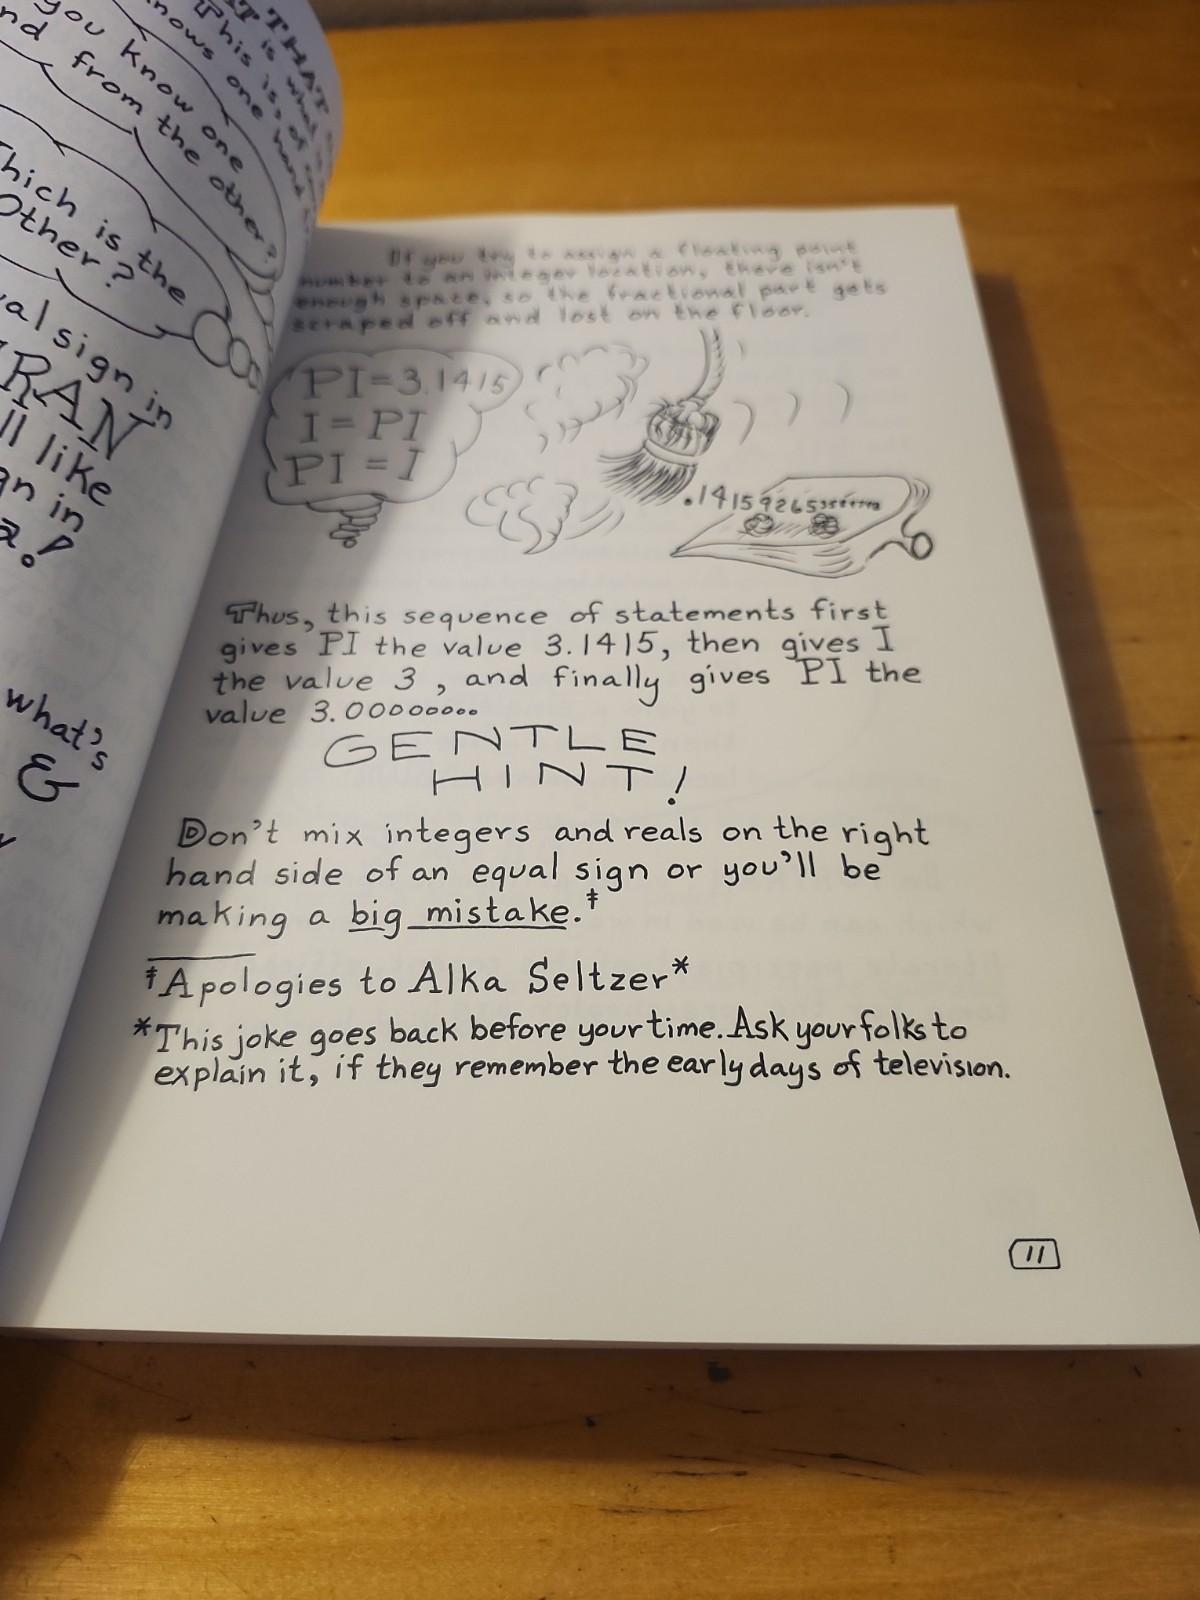 AT THAT
This is what
This is, of
knows one hand
you know one
nd from the other?
hich is the
Other?
al sign in
RAN
ll like
gn in
a!
what's
&
If you try to assign a floating point
number to an integer location, there isn't
enough space, so the fractional part gets
scraped off and lost on the floor.
PI=3.1415
I=PI
PI=I
.14159265
Thus, this sequence of statements first
gives PI the value 3.1415, then gives I
the value 3, and finally gives PI the
value 3.00000000
GENTLE
HINT!
Don't mix integers and reals on the right
hand side of an equal sign or you'll be
making a big mistake.‡
‡Apologies to Alka Seltzer*
*This joke goes back before your time. Ask your folks to
explain it, if they remember the early days of television.
11